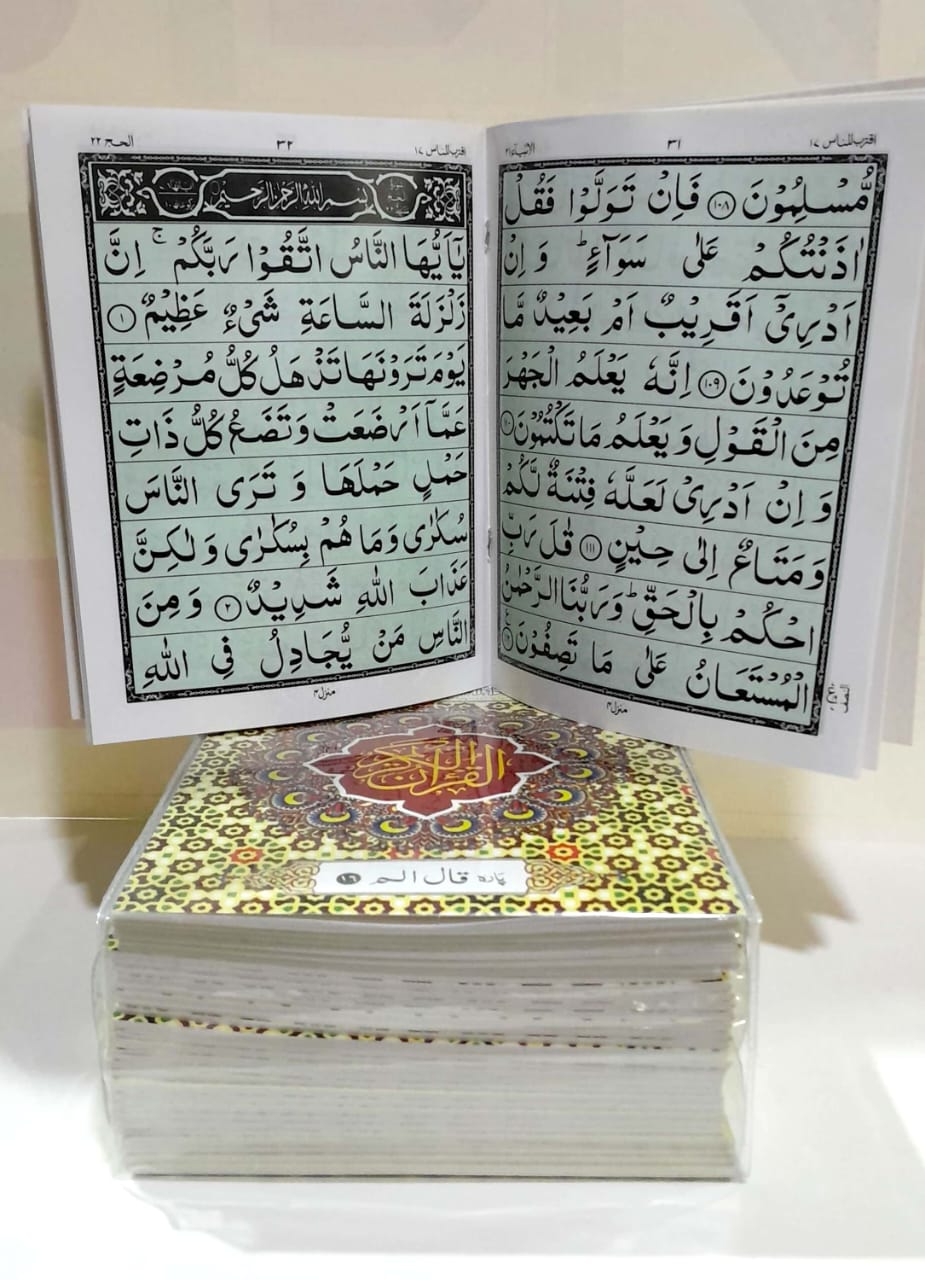 اقترب للناس ۱۷
۳۱
الانبیاء ۲۱
مُّسْلِمُوْنَ ۝۱۰۸ فَاِنْ تَوَلَّوْا فَقُلْ
اٰذَنْتُكُمْ عَلٰى سَوَآءٍ ؕ وَ اِنْ
اَدْرِيْۤ اَقَرِيْبٌ اَمْ بَعِيْدٌ مَّا
تُوْعَدُوْنَ ۝۱۰۹ اِنَّهٗ يَعْلَمُ الْجَهْرَ
مِنَ الْقَوْلِ وَ يَعْلَمُ مَا تَكْتُمُوْنَ ۝۱۱۰
وَ اِنْ اَدْرِيْ لَعَلَّهٗ فِتْنَةٌ لَّكُمْ
وَ مَتَاعٌ اِلٰى حِيْنٍ ۝۱۱۱ قٰلَ رَبِّ
احْكُمْ بِالْحَقِّ ؕ وَ رَبُّنَا الرَّحْمٰنُ
الْمُسْتَعَانُ عَلٰى مَا تَصِفُوْنَ ۝۱۱۲
النصف
منزل ۴
اقترب للناس ۱۷
۳۲
الحج ۲۲
بِسْمِ اللّٰهِ الرَّحْمٰنِ الرَّحِيْمِ
يٰۤاَيُّهَا النَّاسُ اتَّقُوْا رَبَّكُمْ ۚ اِنَّ
زَلْزَلَةَ السَّاعَةِ شَيْءٌ عَظِيْمٌ ۝۱
يَوْمَ تَرَوْنَهَا تَذْهَلُ كُلُّ مُرْضِعَةٍ
عَمَّاۤ اَرْضَعَتْ وَ تَضَعُ كُلُّ ذَاتِ
حَمْلٍ حَمْلَهَا وَ تَرَى النَّاسَ
سُكٰرٰى وَ مَا هُمْ بِسُكٰرٰى وَ لٰكِنَّ
عَذَابَ اللّٰهِ شَدِيْدٌ ۝۲ وَ مِنَ
النَّاسِ مَنْ يُّجَادِلُ فِي اللّٰهِ
منزل ۴
القرآن الكريم
پارہ قال الم ۱۶